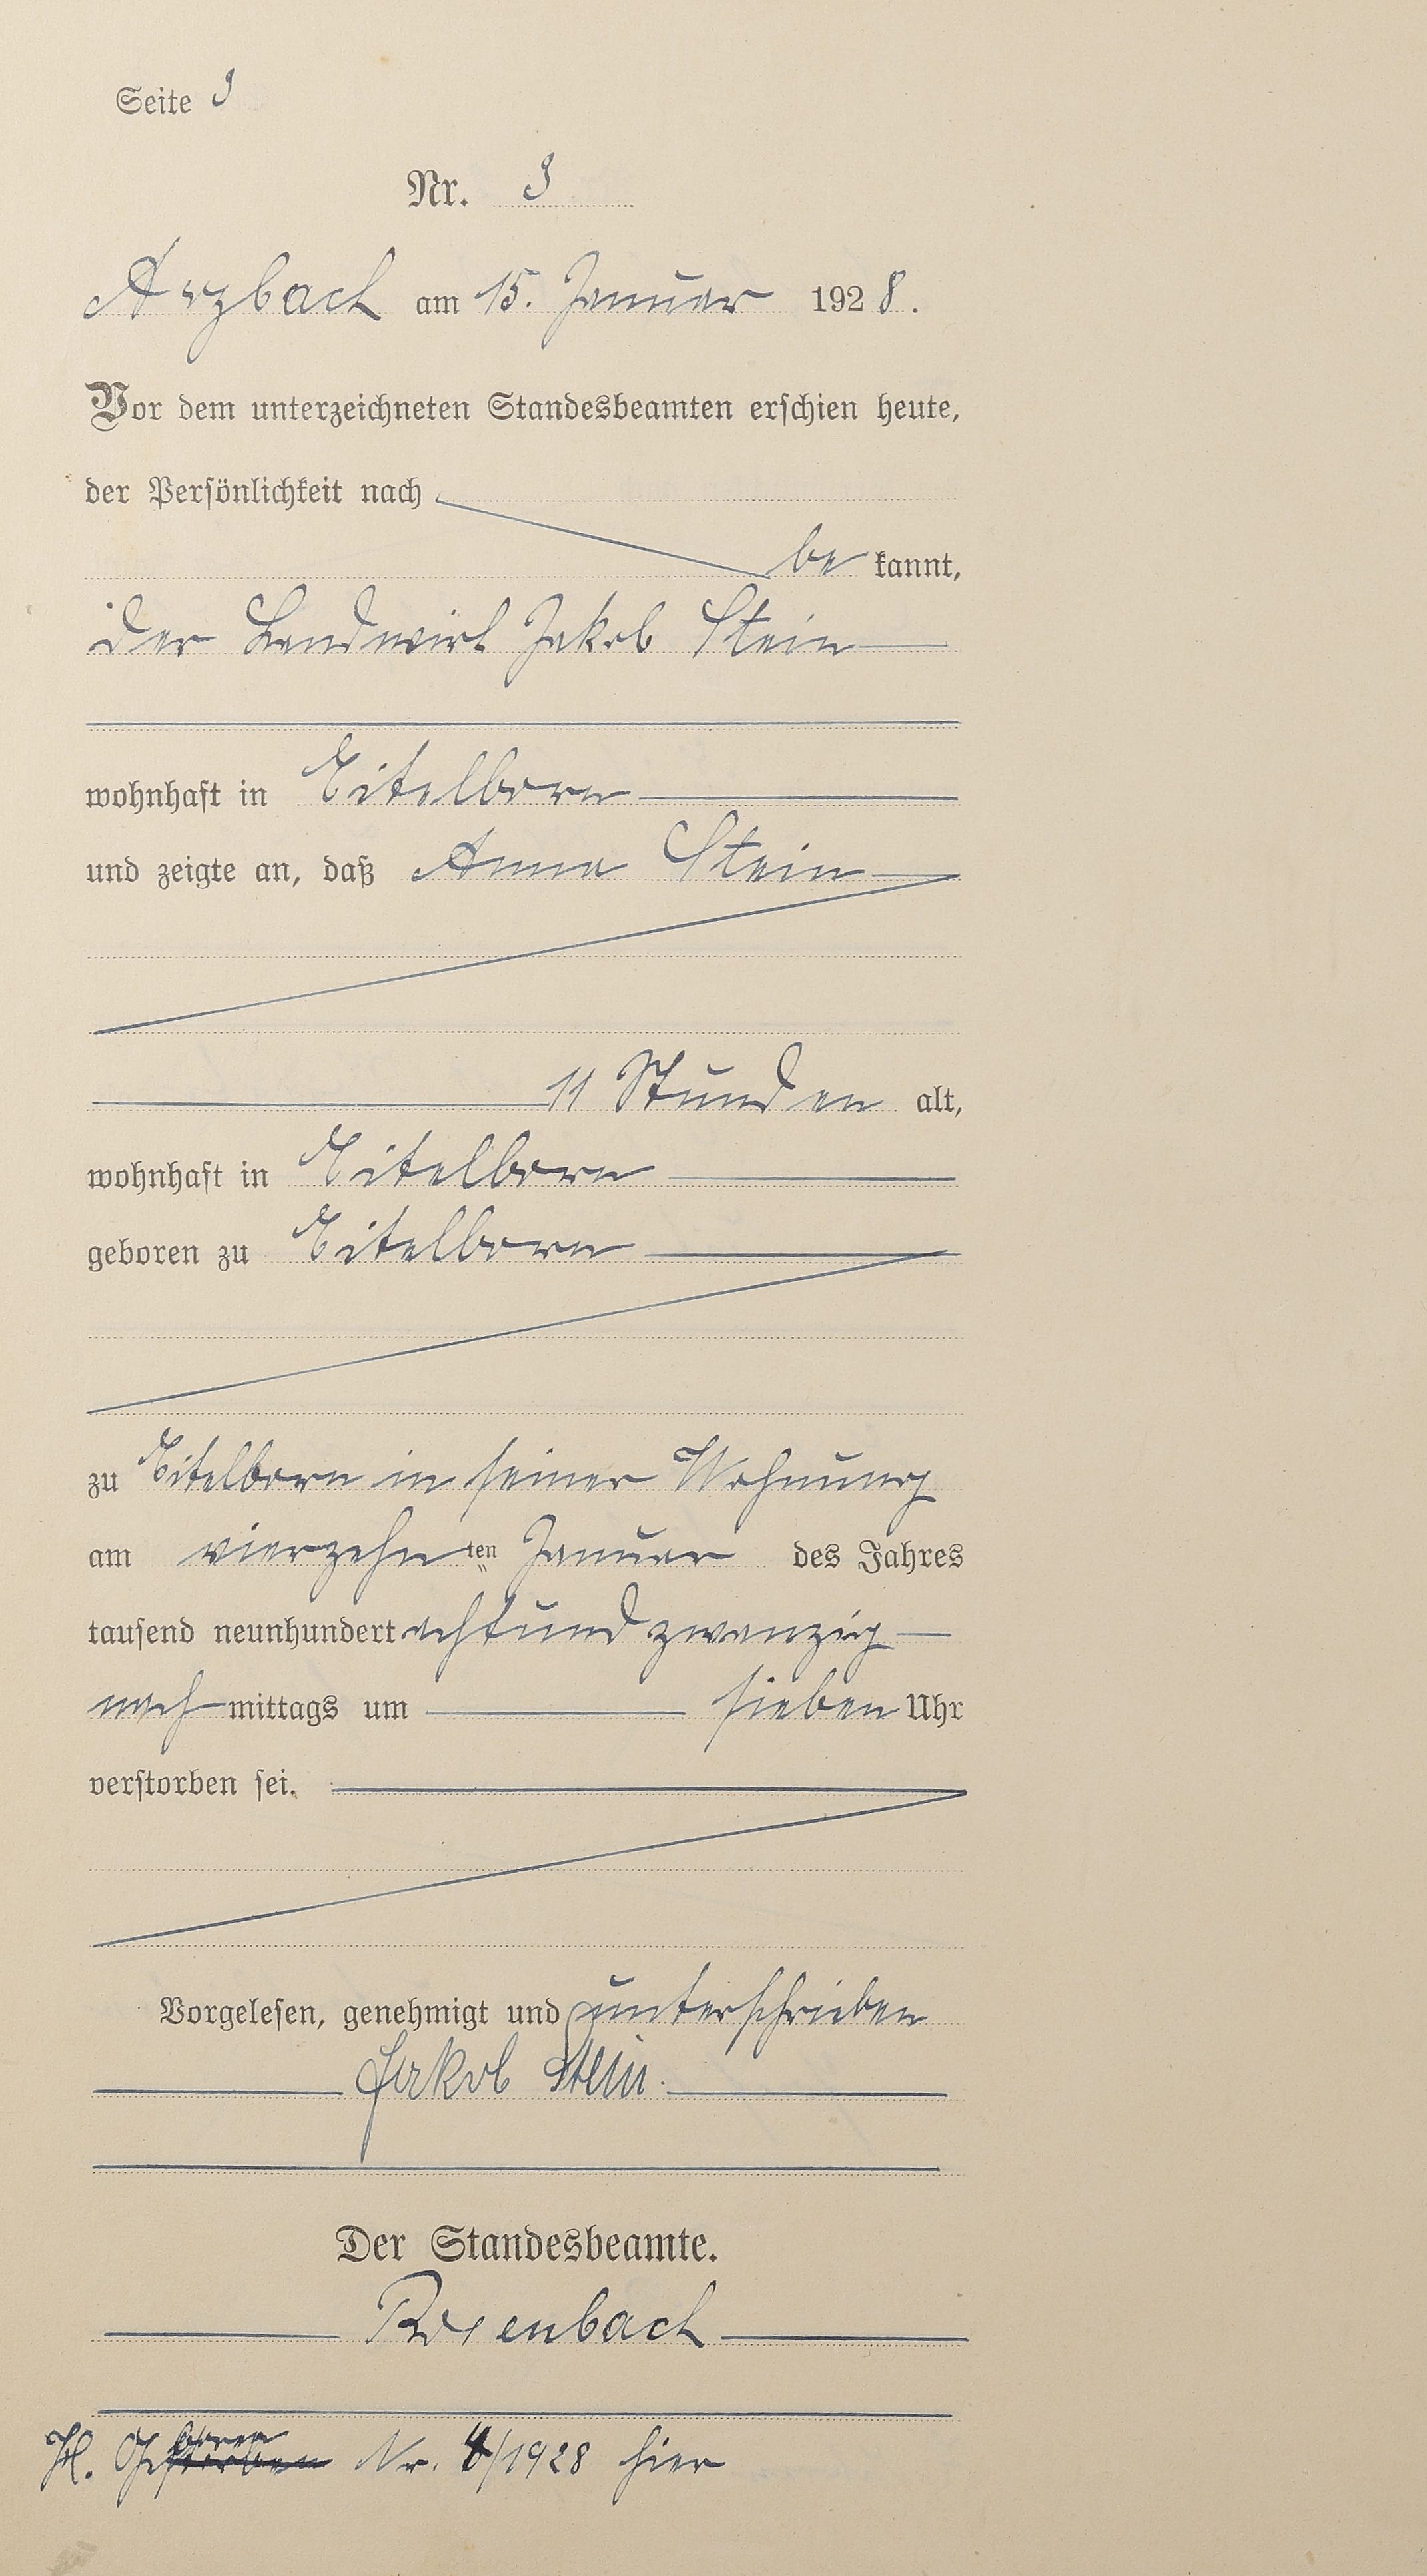 Seite 3
Nr. 3
Arzbach am 15. Januar 1928.
Vor dem unterzeichneten Standesbeamten erschien heute,
der Persönlichkeit nach
be kannt,
der Landwirt Jakob Stein
wohnhaft in Eitelborn
und zeigte an, daß Anna Stein
11 Stunden alt,
wohnhaft in Eitelborn
geboren zu Eitelborn
zu Eitelborn in seiner Wohnung
am vierzehn ten Januar des Jahres
tausend neunhundert achtundzwanzig
nach mittags um sieben Uhr
verstorben sei.
Vorgelesen, genehmigt und unterschrieben
Jakob Stein.
Der Standesbeamte.
Rosenbach
boren
Gestorben Nr. 4/1928 hier